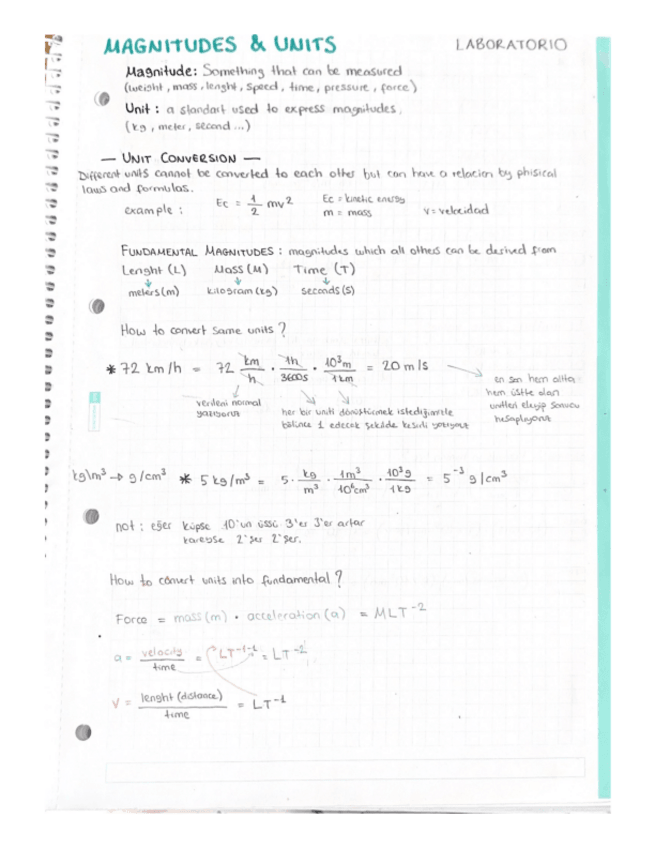 MAGNITUDES & UNITS
LABORATORIO
Magnitude: Something that can be measured
(weight, mass, lenght, speed, time, pressure, force)
Unit: a standart used to express magnitudes,
(kg, meter, second...)
— UNIT CONVERSION —
Different units cannot be converted to each other but can have a relacion by phisical
laws and formulas.
example: Ec = 1/2 mv² Ec = kinetic energy
m = mass v = velocidad
FUNDAMENTAL MAGNITUDES: magnitudes which all others can be derived from
Lenght (L) Mass (M) Time (T)
meters (m) kilogram (kg) seconds (s)
How to convert same units?
* 72 km/h = 72 km/h · 1h/3600s · 10³m/1km = 20 m/s
verileni normal
yazıyoruz
her bir uniti dönüştürmek istediğimizle
bölünce 1 edecek şekilde kesirli yazıyoruz
en son hem altta
hem üstte olan
unitleri eleyip sonucu
hesaplıyoruz
kg\m³ → g/cm³ * 5 kg/m³ = 5 · kg/m³ · 1m³/10⁶cm³ · 10³g/1kg = 5⁻³ g/cm³
not: eğer küpse 10'un üssü 3'er 3'er artar
kareyse 2'şer 2'şer.
How to convert units into fundamental?
Force = mass (m) · acceleration (a) = MLT⁻²
a = velocity/time = LT⁻¹⁻¹ = LT⁻²
V = lenght (distance)/time = LT⁻¹